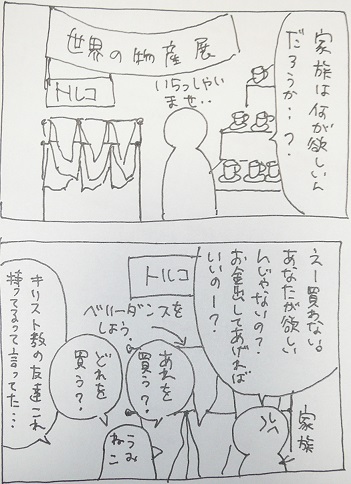 家族は何が欲しいん
だろうか…?
世界の物産展
いらっしゃい
ませ..
トルコ
えー買わない。
あなたが欲しい
んじゃないの?
お金出してあげれば
いいのー?
トルコ
ベリーダンスを
しよう。
家族
あれを
買う?
どれを
買う?
うみ
ねこ
キリスト教の友達これ
持ってるって言ってた…